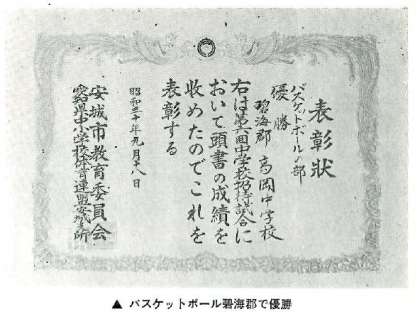 表彰状
バスケットボールの部
優勝
碧海郡 高岡中学校
右は第六回中学校招待試合に
おいて頭書の成績を
収めたのでこれを
表彰する
昭和三十年九月十八日
安城市教育委員会
愛知県中小学校体育連盟安城支所
▲ バスケットボール碧海郡で優勝